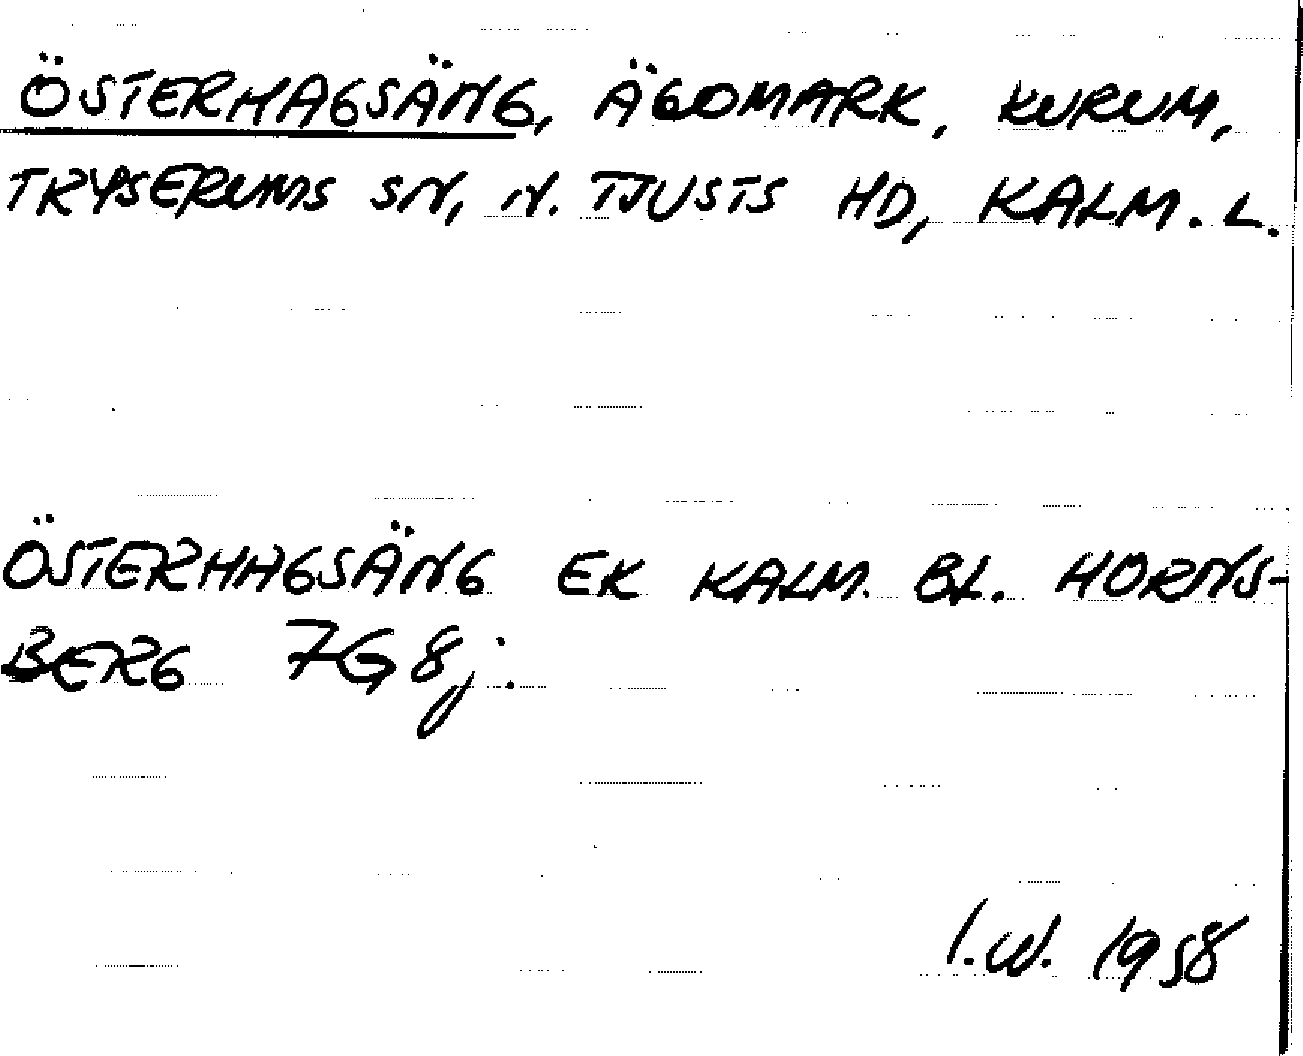 ÖSTERHAGSÄNG, ÄGOMARK, KURUM,
TRYSERUMS SN, N. TJUSTS HD, KALM. L.
ÖSTERHAGSÄNG EK KALM. BL. HORNS-
BERG 7G 8j.
I.W. 1958